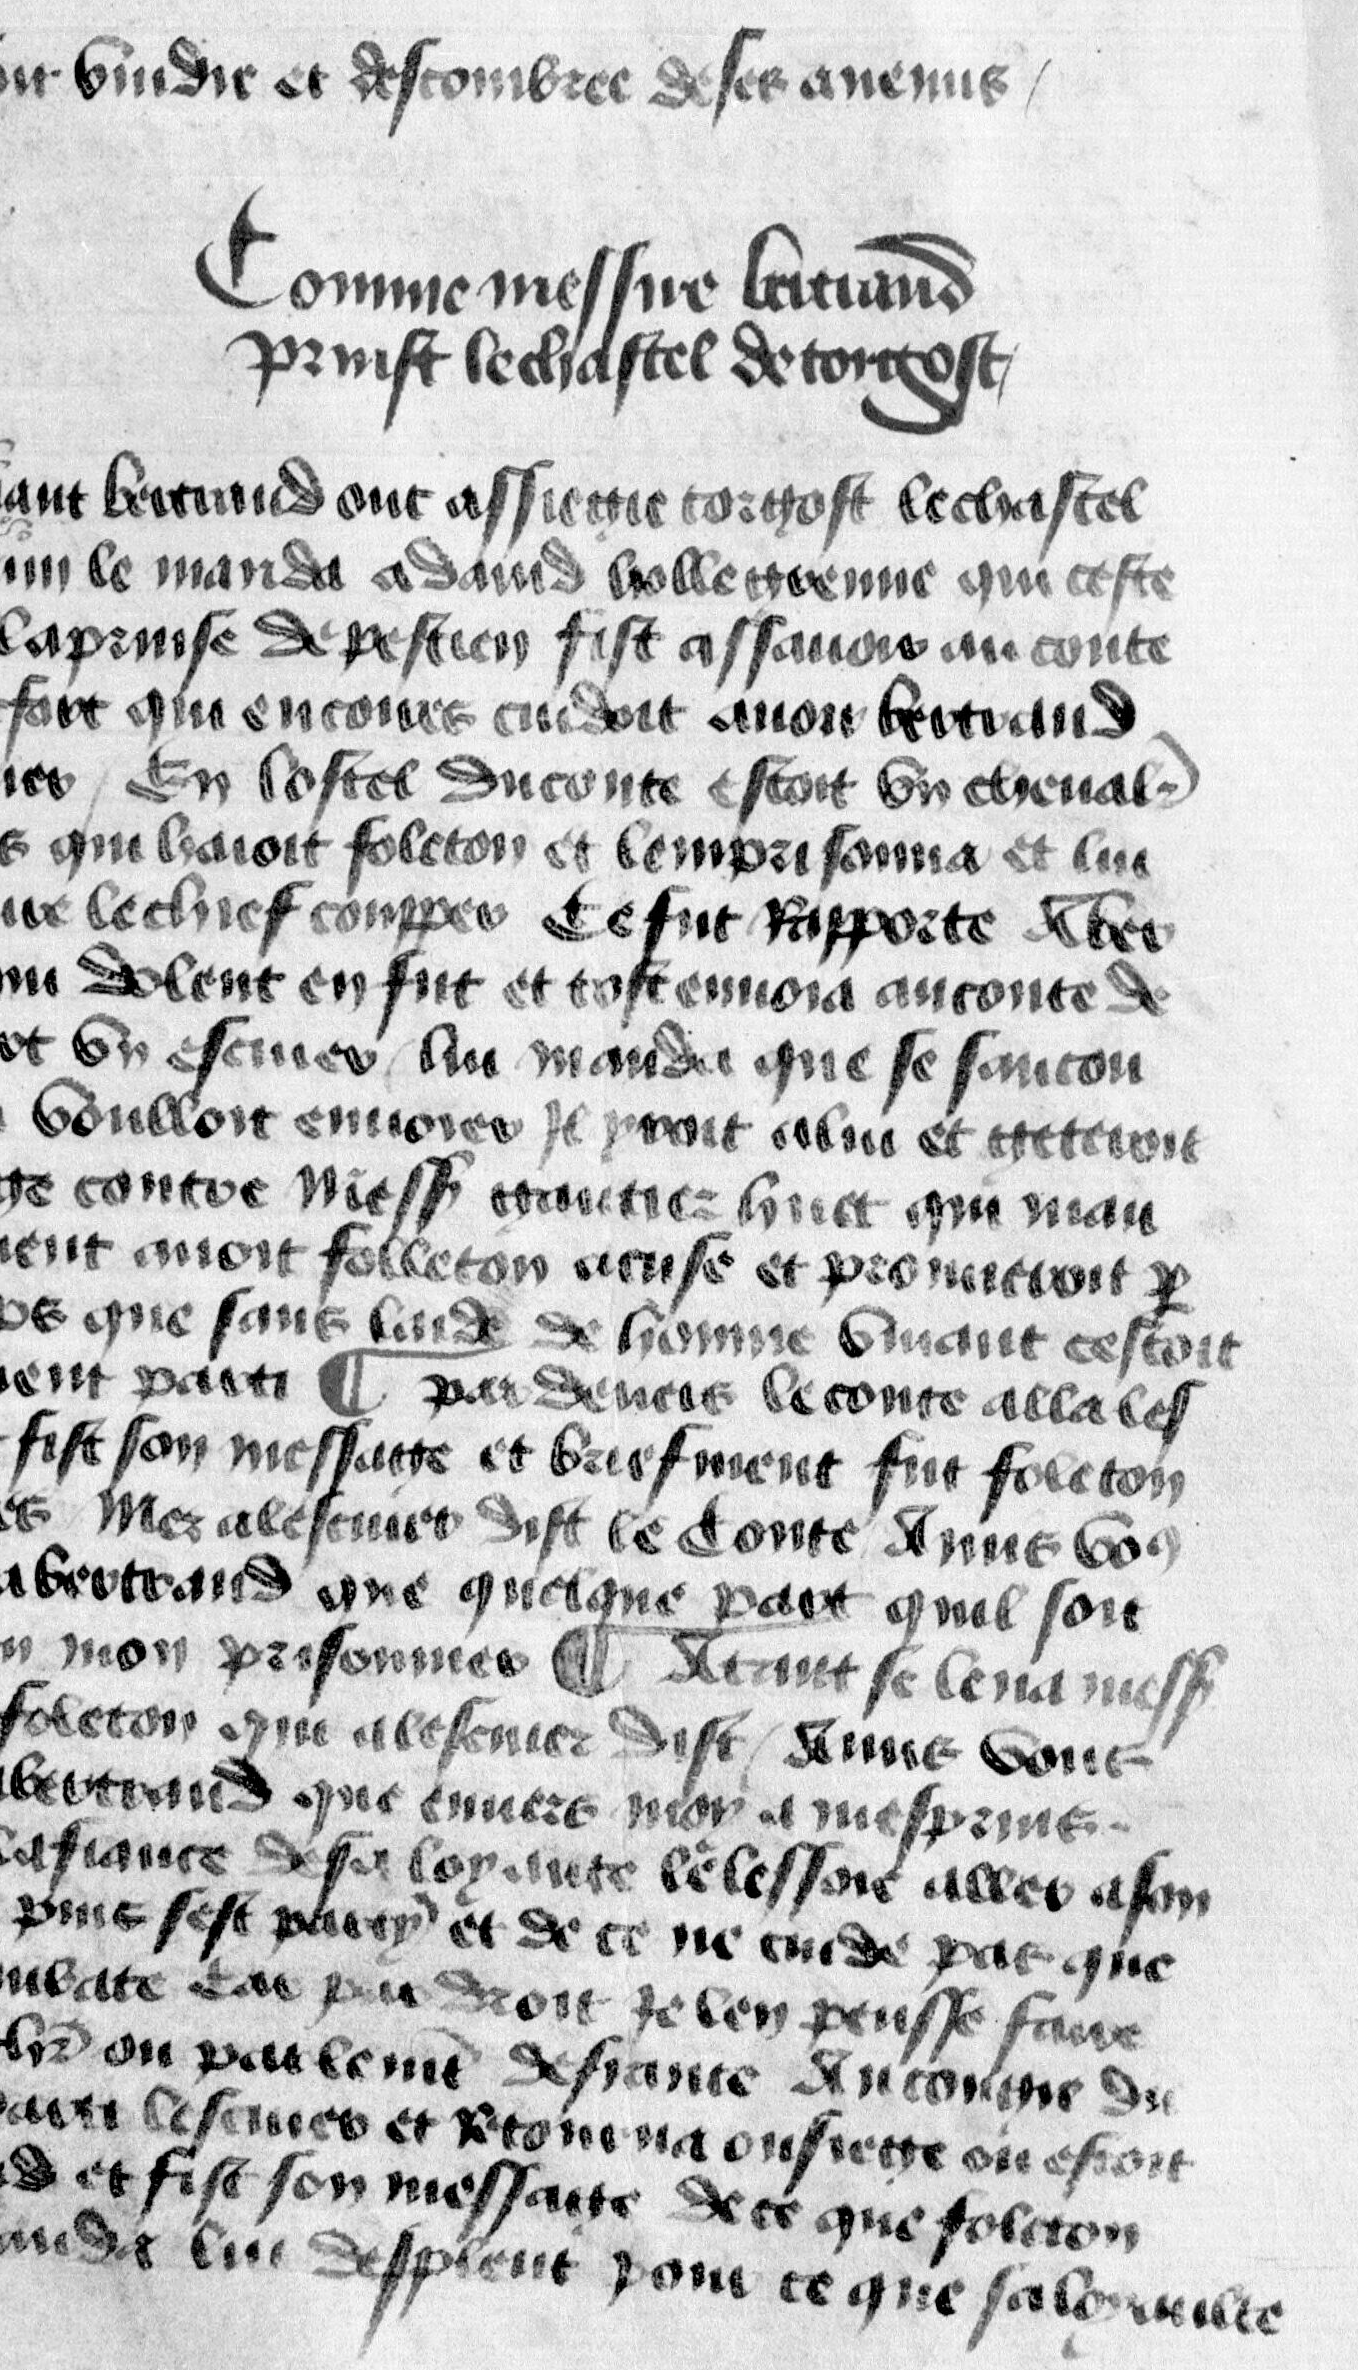 vindie et descombree de ses anemis /
Comme messire bertrand
Prinst le chastel de torigost /
bertrand ont assiegie torgost le chastel
le manda a david hollegrenne qui ceste
la prinse de pestien fist assavoir au conte
fort qui encores cuidoit avoir bertrand
/ En lostel du conte estoit un cheval
qui haioit foleton et lemprisonna et lui
le chief coupper Ce fut Rapporte A ber
dolent en fut et tost envoia au conte de
un escuier / lui manda que se saucon
voulloit envoier Il yroit a lui et getteroit
contre Mess gautier huet qui mau
avoit folleton acuse et promectoit p
que sans laide de homme vivant cestoit
parti ¶ par devers le conte alla les
fist son message et briefment fut foleton
Mez a lescuier dist le Conte / Amis vo9
a bertrand que quelque part quil soit
mon prisonnier ¶ Atant se leva mess
foleton qui a lescuier dist / Amis vous
bertrand que envers moy a mesprins
la fiance de sa loyaute le lessoie aller a son
puis sest party et de ce ne cuide pas que
Car par droit Je len peusse faire
ou parlemt defiance Au congie du
lescuier et Retourna ou siege ou estoit
et fist son message de ce que foleton
manda lui desplent pour ce que sa loyaulte